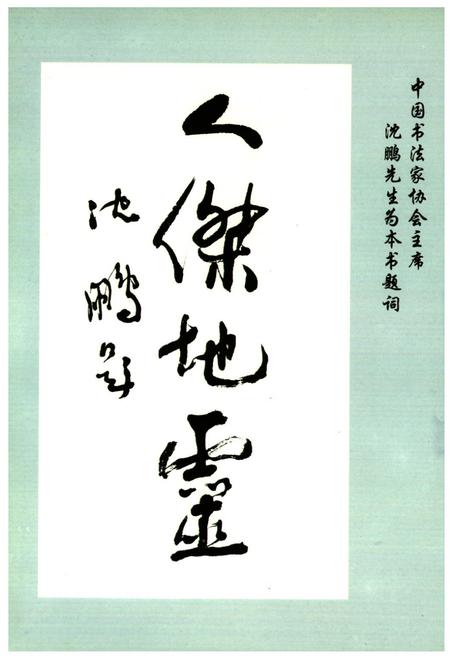 中国书法家协会主席
沈鹏先生为本书题词
人傑地靈
沈鹏题